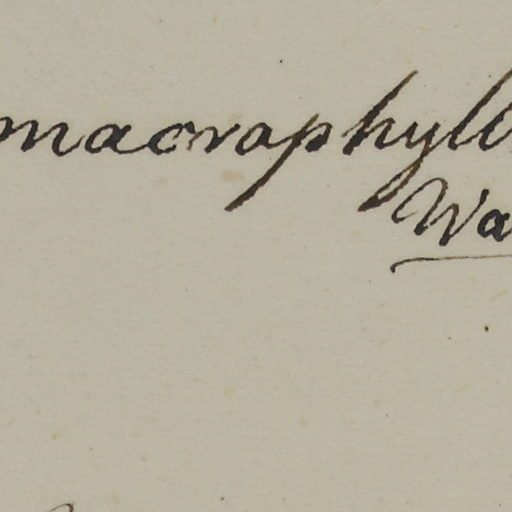 macrophyll
Wa